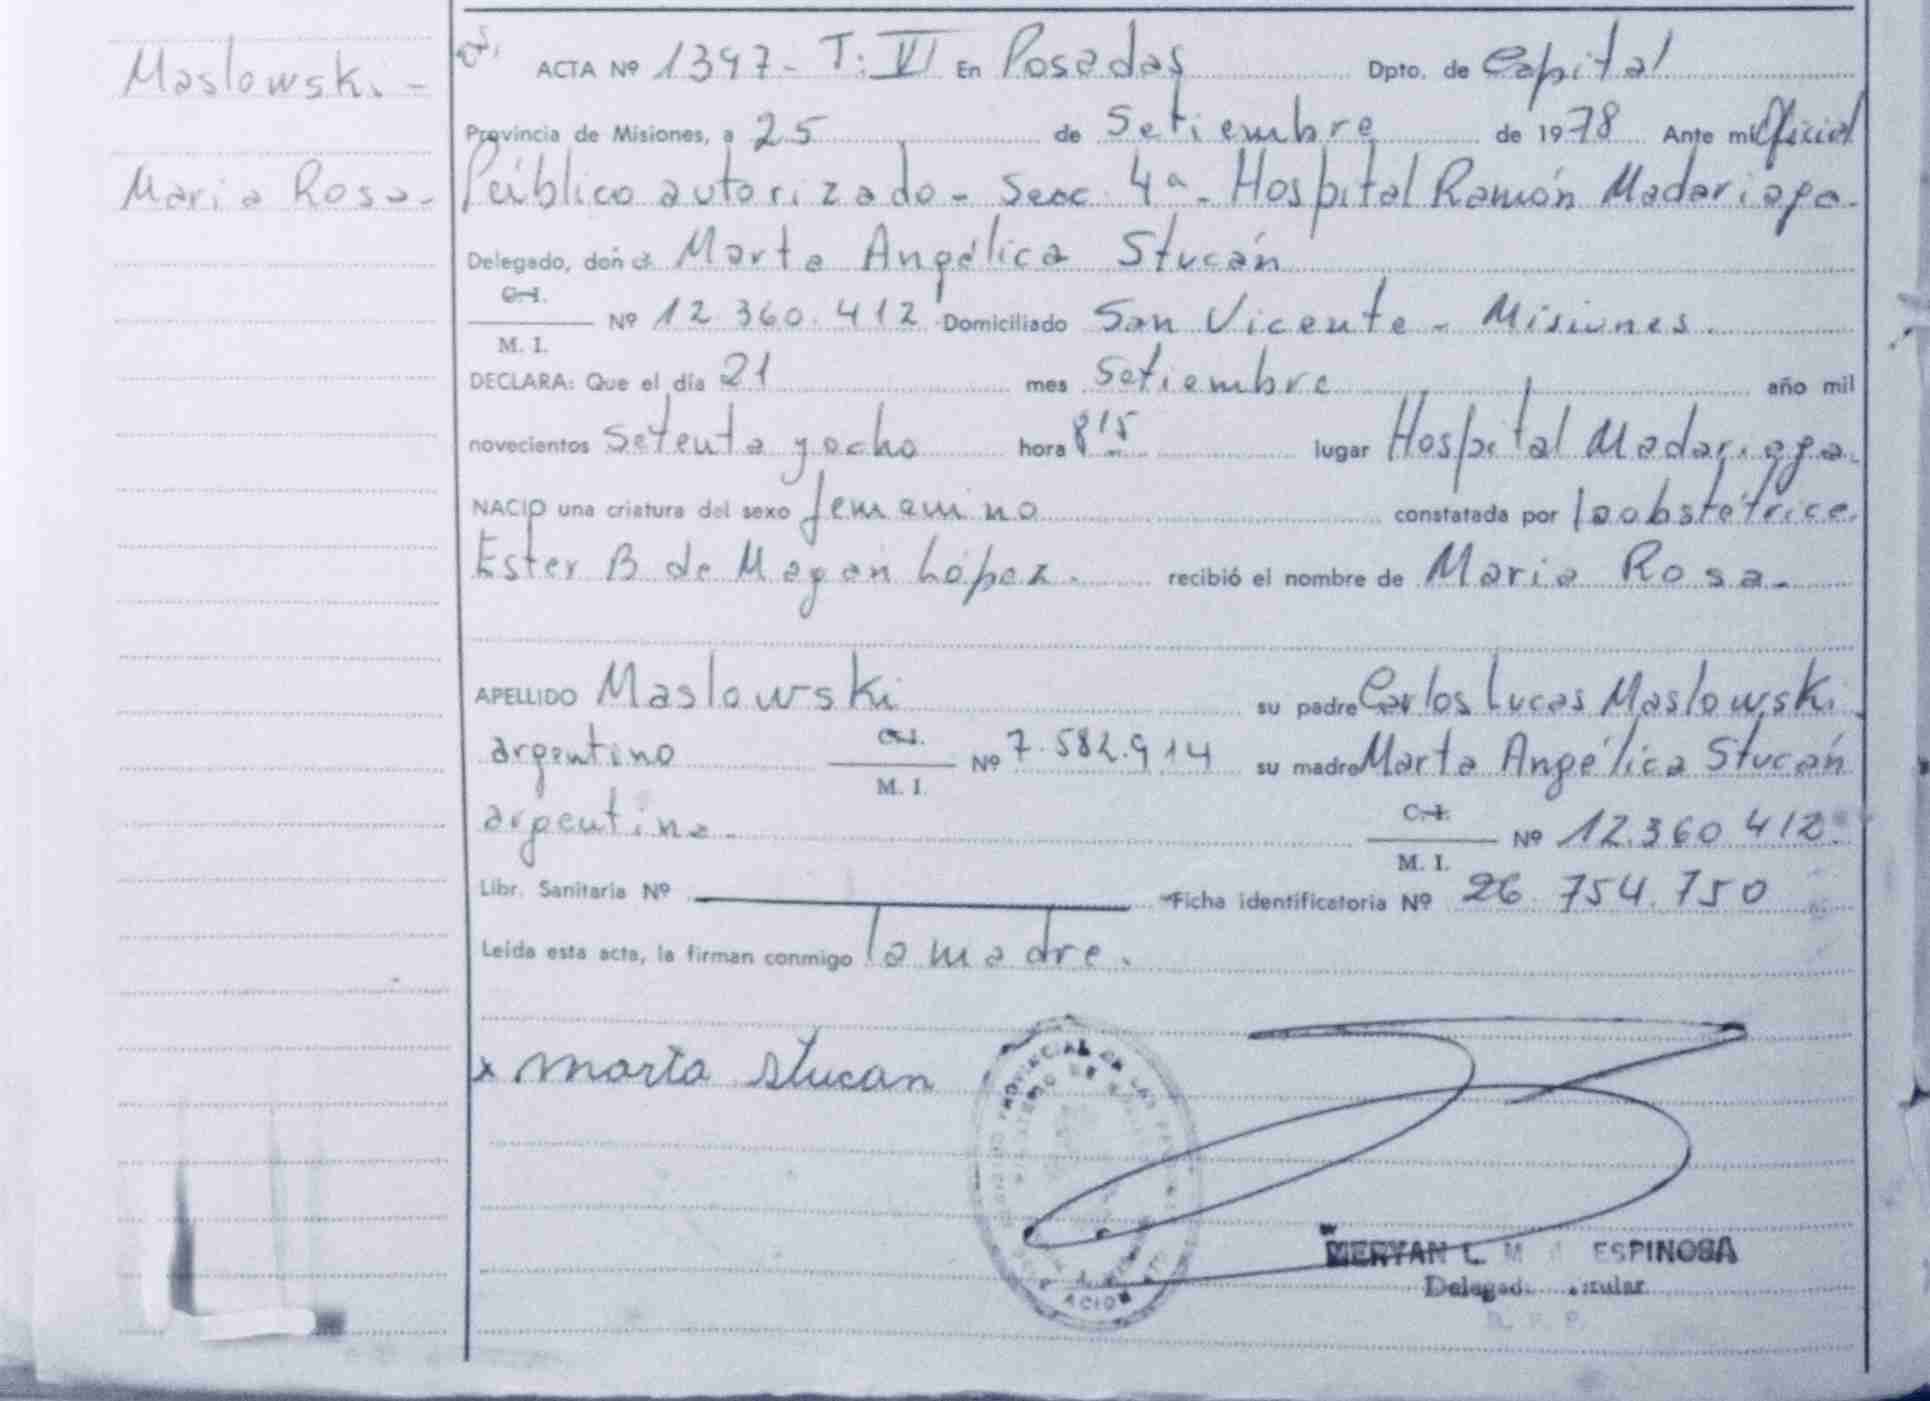 Maslowski -
Maria Rosa -
ACTA Nº 1397 - T: VI En Posadas Dpto. de Capital
Provincia de Misiones, a 25 de Setiembre de 1978 Ante mi Oficial
Público autorizado - Secc 4ª - Hospital Ramón Madariaga -
Delegado, don Marta Angélica Stucán
C.I.
M. I. Nº 12.360.412 Domiciliado San Vicente - Misiones
DECLARA: Que el día 21 mes Setiembre año mil
novecientos setenta y ocho hora 8 15 lugar Hospital Madariaga
NACIO una criatura del sexo femenino constatada por la obstétrice
Ester B de Magan López. recibió el nombre de Maria Rosa -
APELLIDO Maslowski su padre Carlos Lucas Maslowski
argentino C.I. M. I. Nº 7.582.914 su madre Marta Angélica Stucán
argentina - C.I. M. I. Nº 12.360.412
Libr. Sanitaria Nº Ficha identificatoria Nº 26.754.750
Leída esta acta, la firman conmigo la madre.
x marta stucan
MERYAN L. M ESPINOSA